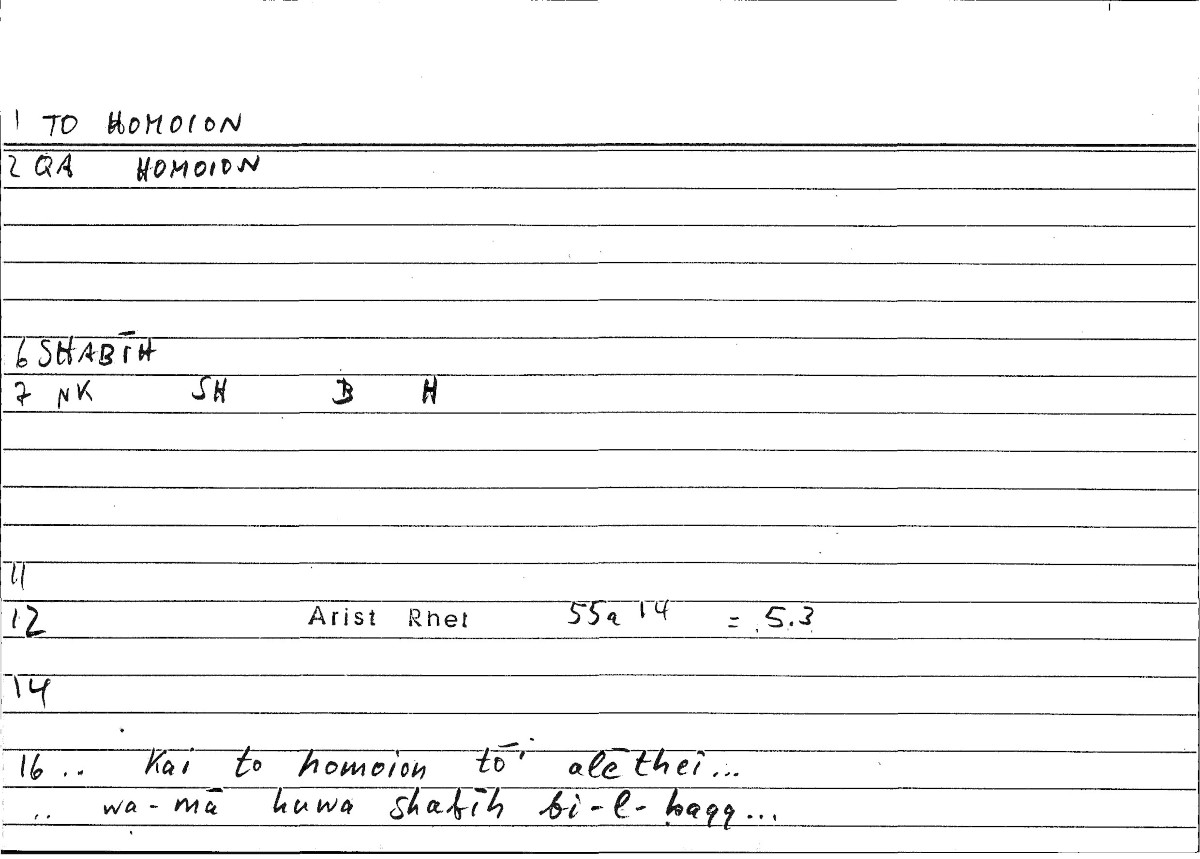 1 TO HOMOION
2 QA HOMOION
6 SHABĪH
7 NK SH B H
11
12 Arist Rhet 55a 14 = 5.3
14
16 .. kai to homoion tō alēthei...
.. wa-mā huwa shabīh bi-l-ḥaqq...